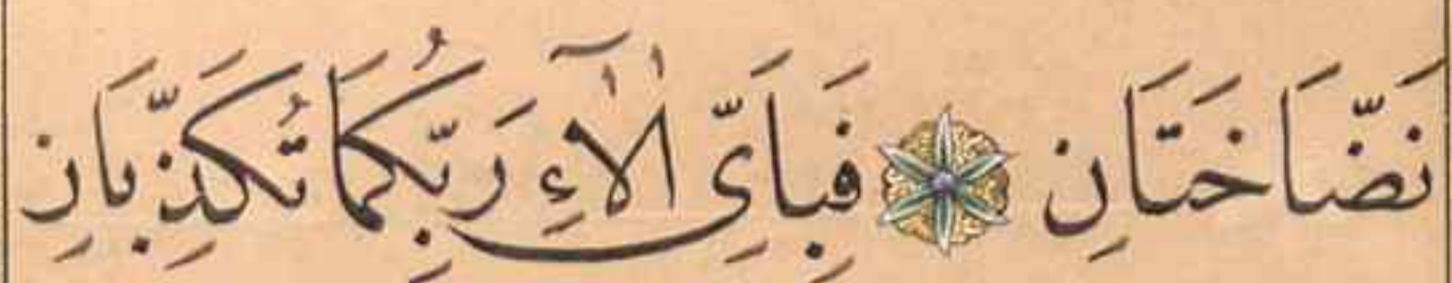 نَضَّاخَتَانِ ۝ فَبِاَىِّ اٰلَٓاءِ رَبِّكُمَا تُكَذِّبَانِ